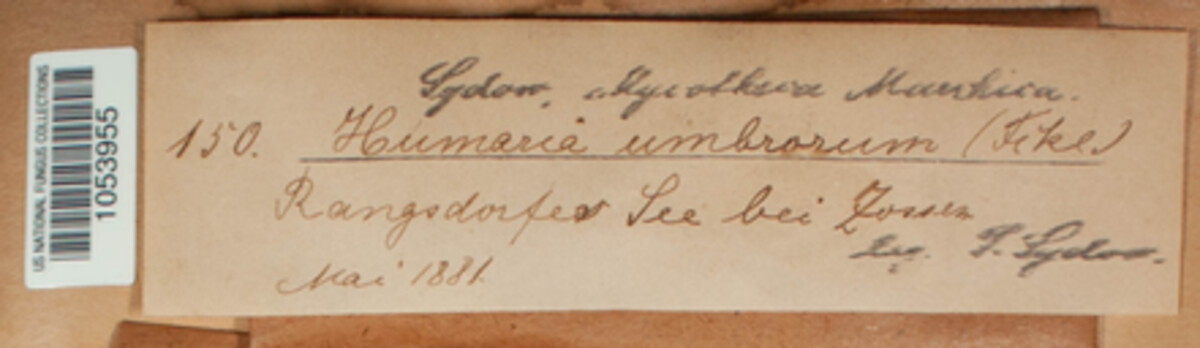 US NATIONAL FUNGUS COLLECTIONS
1053955
Sydow, Mycotheca Marchica.
150. Humaria umbrorum (Fckl.)
Rangsdorfer See bei Zossen
leg. P. Sydow.
Mai 1881.